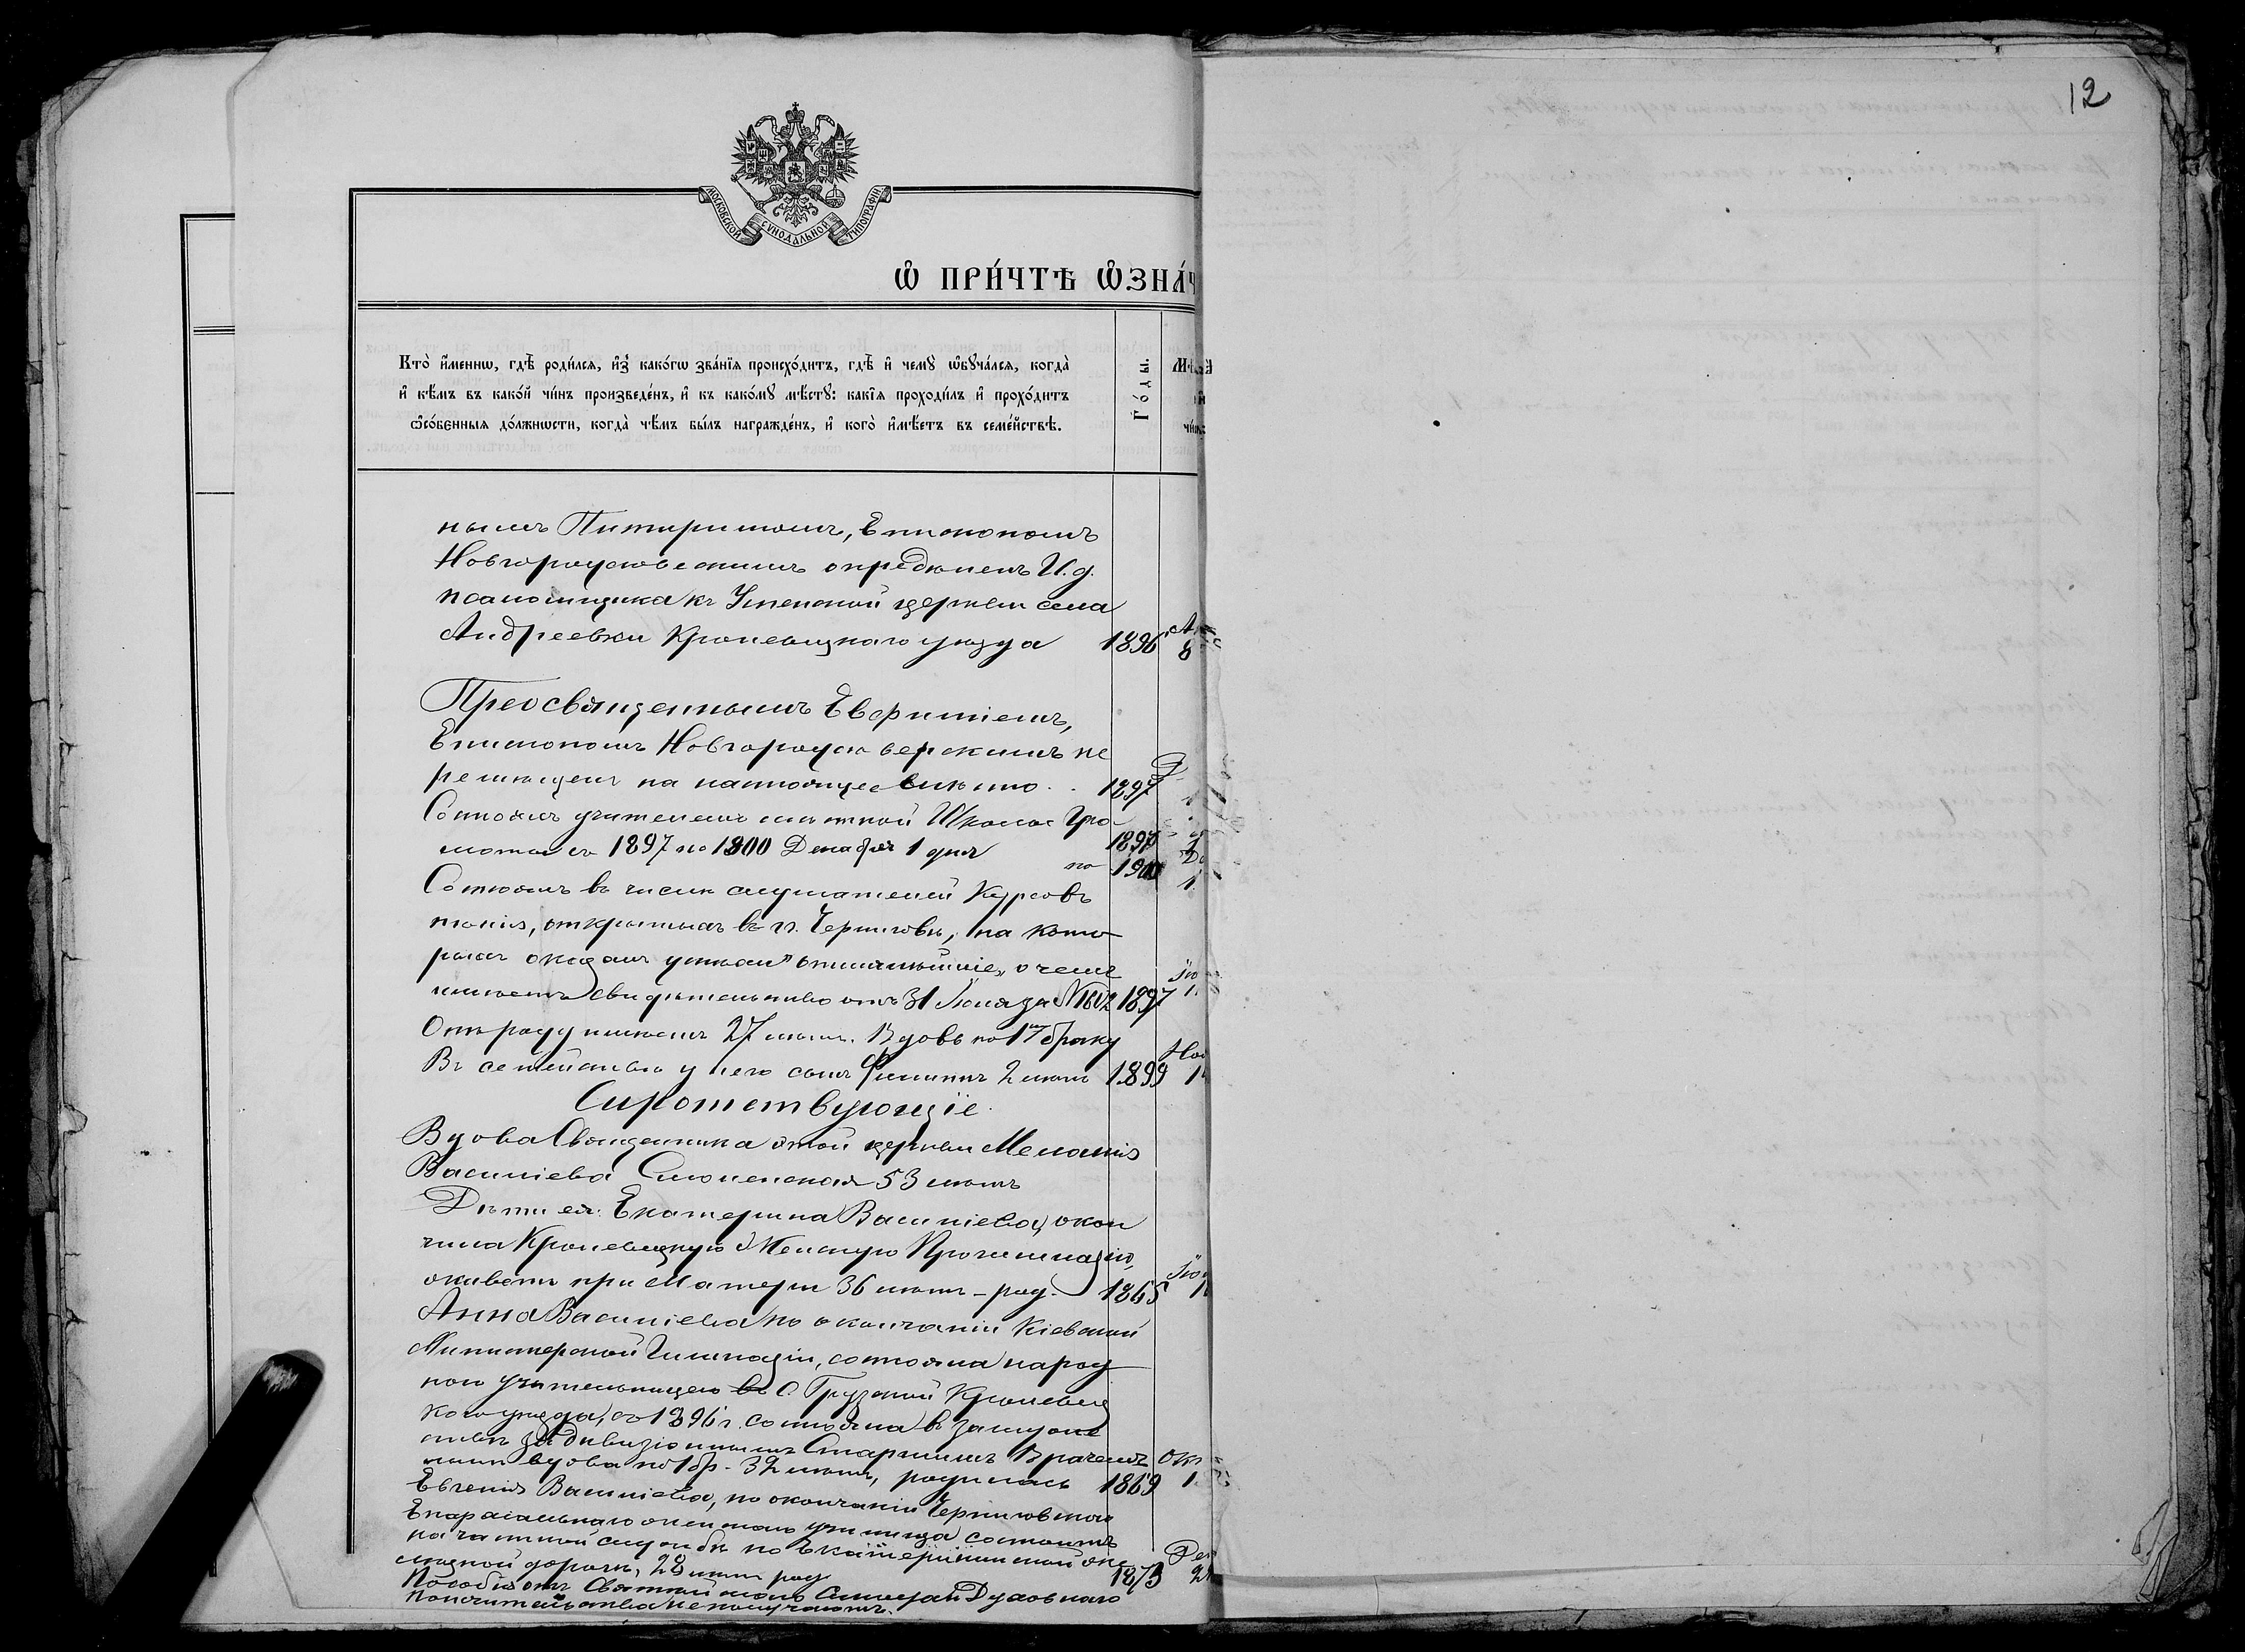 12
МОСКОВСКОЙ СѴНОДАЛЬНОЙ ТИПОГРАФІИ
Ѡ҆ ПРИ́ЧТѢ Ѡ҆ЗНА́Ч
Кто̀ и҆́менно, гдѣ̀ роди́лсѧ, и҆з̾ како́гѡ зва́нїѧ происхо́дитъ, гдѣ̀ и҆ чемꙋ̀ ѡ҆бꙋча́лсѧ, когда̀
и҆ кѣ́мъ въ како́й чи́нъ произведе́нъ, и҆ къ како́мꙋ мѣ́стꙋ: какі̑ѧ проходи́лъ и҆ прохо́дитъ
ѻ҆со́бєнныѧ до́лжнѡсти, когда̀ чѣ́мъ бы́лъ награжде́нъ, и҆ кого̀ и҆мѣ́етъ въ семе́йствѣ.
Го́ды.
нымъ Питиримомъ, Епископомъ
Новгородсѣверскимъ опредѣленъ И.д.
псаломщика къ Успенской церкви села
Андреевки Кролевецкаго уѣзда 1896 8
Преосвященнымъ Евфиміемъ,
Епископомъ Новгородсѣверскимъ пе
ремѣщенъ на настоящее мѣсто . . 1897
Состоялъ учителемъ мѣстной Школы Гра
моты съ 1897 по 1900 Декабря 1 дня 1897
по 1900
Состоялъ въ числѣ слушателей Курсовъ
пѣнія, открытыхъ въ г. Черниговѣ, на кото
рыхъ оказалъ успѣхи "отличнѣйшіе", о чемъ
имѣетъ свидѣтельство отъ 31 Іюля за № 1897
Отъ роду имѣетъ 27 лѣтъ. Вдовъ по 1му браку
Въ семействѣ у него сынъ Филиппъ 2 лѣтъ 1899
Сиротствующіе.
Вдова Священника этой церкви Меланія
Васильева Смоленская 53 лѣтъ
Дѣти ея: Екатерина Васильева, окон
чила Кролевецкую Женскую Прогимназію,
живетъ при Матери 36 лѣтъ – род. 1865
Анна Васильева по окончаніи Кіевской
Министерской Гимназіи, состояла народ
ною учительницею въ С. Грузской Кролевец
каго уѣзда, съ 1896 г. состояла въ замуже
ствѣ за Дивизіоннымъ Старшимъ Врачемъ Окт
нынѣ вдова по 1 бр. 32 лѣтъ, родилась 1869
Евгенія Васильева, по окончаніи Черниговскаго
Епархіальнаго женскаго училища состоитъ
на частной службѣ по Екатерининской же
лѣзной дорогѣ, 28 лѣтъ род. 1873
Пособія отъ Епархіальнаго Духовнаго
Попечительства не получаютъ.